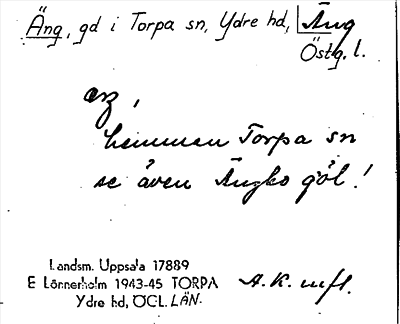 Äng, gd i Torpa sn, Ydre hd, Äng
Östg. l.
hemman Torpa sn
se även Ängko göl!
Landsm. Uppsala 17889
E Lönnerholm 1943-45 TORPA
Ydre hd, ÖGL. LÄN.
A.K. mfl.